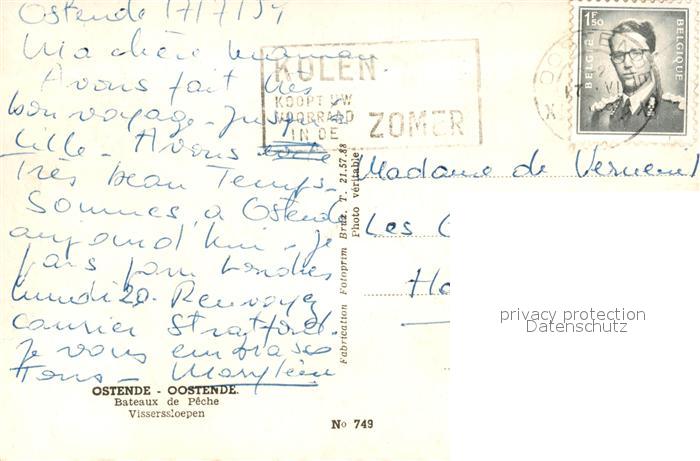 Ostende 17/7/54
Ma chère maman.
Avons fait très
bon voyage - jusqu'à
Lille - Avons
Très beau Temps.
Sommes à Ostende
aujourd'hui - je
pars pour Londres
lundi 20. Renvoyez
courrier Stratford.
je vous embrasse
Tous - Marylène
OSTENDE - OOSTENDE.
Bateaux de Pêche
Visserssloepen
No 749
KOLEN
KOOPT UW
VOORRAAD
IN DE ZOMER
1F50
BELGIE BELGIQUE
Fabrication Fotoprim Brux. T. 21.57.88
Photo véritable
Madame de
Les
privacy protection
Datenschutz